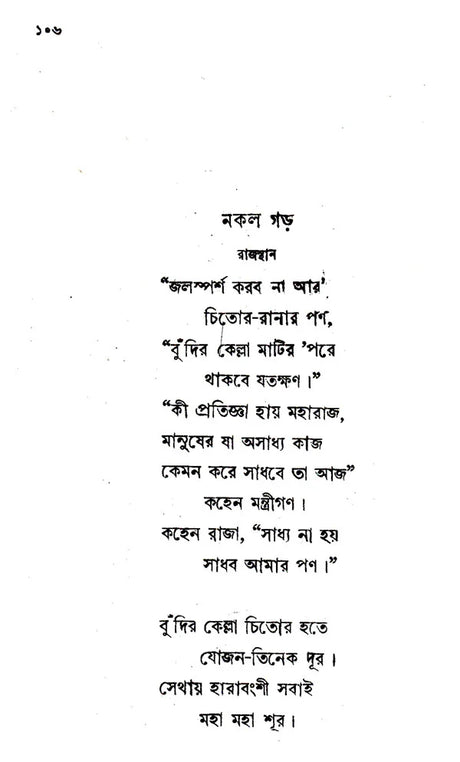 ১০৬
নকল গড়
রাজস্থান
“জলস্পর্শ করব না আর’
চিতোর-রানার পণ,
“বুঁদির কেল্লা মাটির ’পরে
থাকবে যতক্ষণ।”
“কী প্রতিজ্ঞা হায় মহারাজ,
মানুষের যা অসাধ্য কাজ
কেমন করে সাধবে তা আজ”
কহেন মন্ত্রীগণ।
কহেন রাজা, “সাধ্য না হয়
সাধব আমার পণ।”
বুঁদির কেল্লা চিতোর হতে
যোজন-তিনেক দূর।
সেথায় হারাবংশী সবাই
মহা মহা শূর।